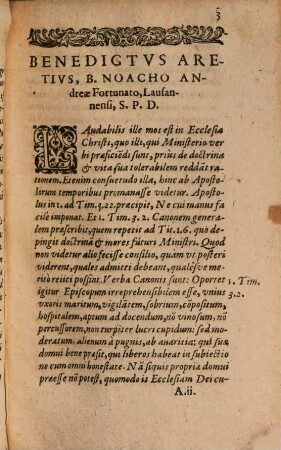 3
BENEDIGTVS ARE-
TIVS, B. NOACHO AN-
dreæ Fortunato, Lausan-
nensi, S. P. D.
LAudabilis ille mos est in Ecclesia
Christi, quo illi, qui Ministerio ver
bi præficiẽdi sunt, prius de doctrina
& vita sua tolerabilem reddãt ra-
tionem. Etenim consuetudo illa, hinc ab Aposto-
lorum temporibus promanasse videtur. Aposto-
lus in 1. ad Tim 4.22. præcipit, Ne cui manus fa
cile imponat. Et 1. Tim. 3. 2. Canonem genera-
lem præscribit, quem repetit ad Tit. 1.6. quo de-
pingit doctrinã & mores futuri Ministri. Quod
non videtur alio fecisse consilio, quàm vt posteri
viderent, quales admitti debeant, qualésve me-
ritò reijci possint. Verba Canonis sunt: Oportet
1. Tim.
igitur Episcopum irreprehensibilem esse, vnius
3.2.
vxoris maritum, vigilãtem, sobrium, cõpositum,
hospitalem, aptum ad docendum, nõ vinosum, nõ
percussorem, non turpiter lucri cupidum: sed mo-
deratum, alienum à pugnis, ab auaritia: qui suæ
domui bene præsit, qui liberos habeat in subiectio
ne cum omni honestate. Nã si quis propria domui
præesse nõ potest, quomodo is Ecclesiam Dei cu-
A.ii.